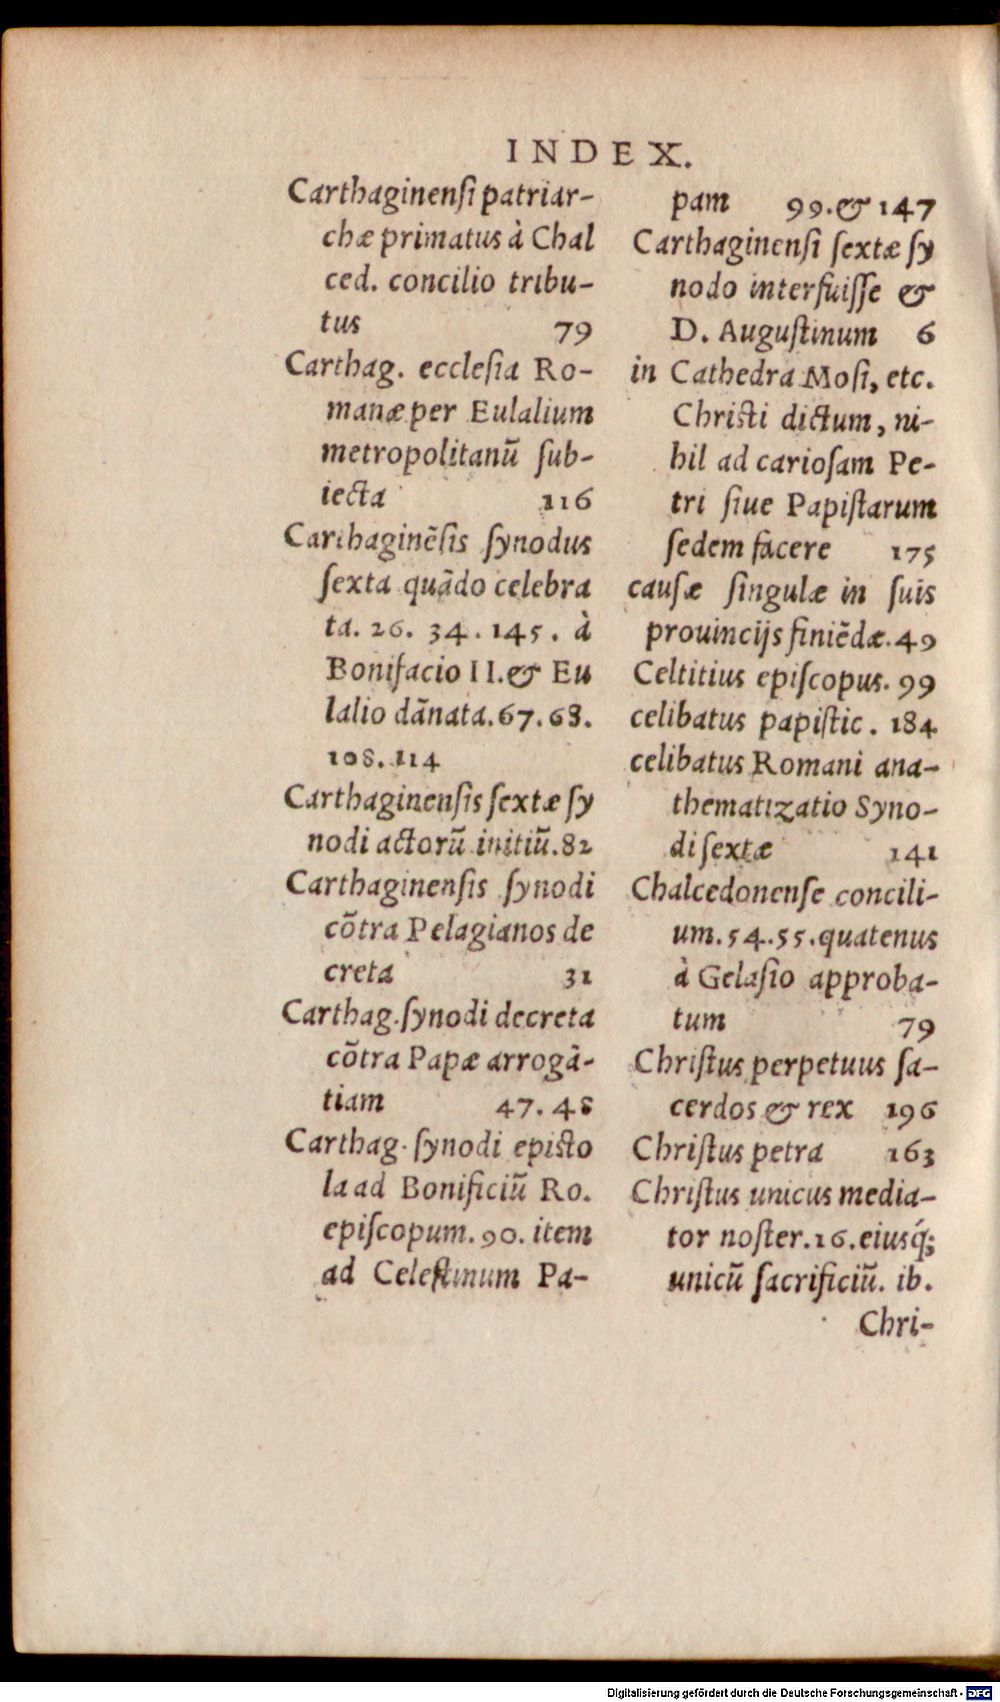 INDEX.
Carthaginensi patriar-
chæ primatus à Chal
ced. concilio tribu-
tus 79
Carthag. ecclesia Ro-
manæ per Eulalium
metropolitanũ sub-
iecta 116
Carthaginẽsis synodus
sexta quãdo celebra
ta. 26. 34. 145. à
Bonifacio II. & Eu
lalio dãnata. 67. 68.
108. 114
Carthaginensis sextæ sy
nodi actorũ initiũ. 82
Carthaginensis synodi
cõtra Pelagianos de
creta 31
Carthag. synodi decreta
cõtra Papæ arrogã-
tiam 47. 48
Carthag. synodi episto
la ad Bonificiũ Ro.
episcopum. 90. item
ad Celestinum Pa-
pam 99. & 147
Carthaginensi sextæ sy
nodo interfuisse &
D. Augustinum 6
in Cathedra Mosi, etc.
Christi dictum, ni-
hil ad cariosam Pe-
tri siue Papistarum
sedem facere 175
causæ singulæ in suis
prouincijs finiẽdæ. 49
Celtitius episcopus. 99
celibatus papistic. 184
celibatus Romani ana-
thematizatio Syno-
di sextæ 141
Chalcedonense concili-
um. 54. 55. quatenus
à Gelasio approba-
tum 79
Christus perpetuus sa-
cerdos & rex 196
Christus petra 163
Christus unicus media-
tor noster. 16. eiusq́;
unicũ sacrificiũ. ib.
Chri-
Digitalisierung gefördert durch die Deutsche Forschungsgemeinschaft - DFG